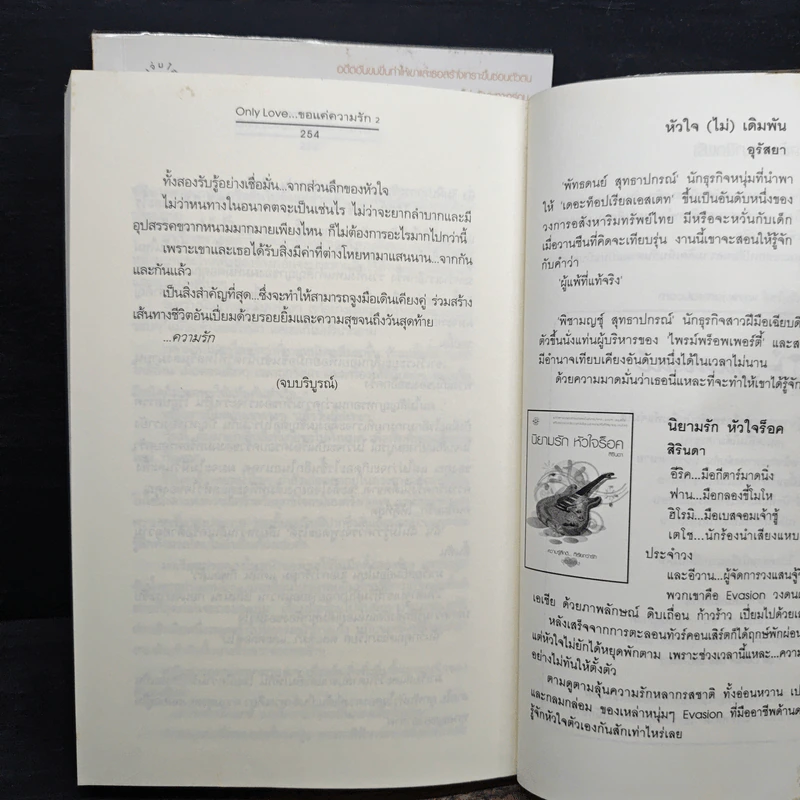 อดีตอันขมขื่นทำให้เขาและเธอสร้างเกราะขึ้นซ่อนตัวตน
Only Love...ขอแค่ความรัก 2
254
ทั้งสองรับรู้อย่างเชื่อมั่น...จากส่วนลึกของหัวใจ
ไม่ว่าหนทางในอนาคตจะเป็นเช่นไร ไม่ว่าจะยากลำบากและมี
อุปสรรคขวากหนามมากมายเพียงไหน ก็ไม่ต้องการอะไรมากไปกว่านี้
เพราะเขาและเธอได้รับสิ่งมีค่าที่ต่างโหยหามาแสนนาน...จากกัน
และกันแล้ว
เป็นสิ่งสำคัญที่สุด...ซึ่งจะทำให้สามารถจูงมือเดินเคียงคู่ ร่วมสร้าง
เส้นทางชีวิตอันเปี่ยมด้วยรอยยิ้มและความสุขจนถึงวันสุดท้าย
...ความรัก
(จบบริบูรณ์)
หัวใจ (ไม่) เดิมพัน
อุรัสยา
'พัทธดนย์ สุทธาปกรณ์' นักธุรกิจหนุ่มที่นำพา
ให้ 'เดอะท็อปเรียลเอสเตท' ขึ้นเป็นอันดับหนึ่งของ
วงการอสังหาริมทรัพย์ไทย มีหรือจะหวั่นกับเด็ก
เมื่อวานซืนที่คิดจะเทียบรุ่น งานนี้เขาจะสอนให้รู้จัก
กับคำว่า
'ผู้แพ้ที่แท้จริง'
'พิชามญชุ์ สุทธาปกรณ์' นักธุรกิจสาวฝีมือเฉียบ
ตัวขึ้นนั่งแท่นผู้บริหารของ 'ไพรม์พร็อพเพอร์ตี้' และ
มีอำนาจเทียบเคียงอันดับหนึ่งได้ในเวลาไม่นาน
ด้วยความมาดมั่นว่าเธอนี่แหละที่จะทำให้เขาได้รู้จัก
นิยามรัก หัวใจร็อค
สิรินดา
นิยามรัก หัวใจร็อค
สิรินดา
อีริค...มือกีตาร์มาดนิ่ง
ฟาน...มือกลองขี้โมโห
ฮิโรมิ...มือเบสจอมเจ้าชู้
เตโช...นักร้องนำเสียงแหบ
ประจำวง
และอีวาน...ผู้จัดการวงแสน
พวกเขาคือ Evasion วงดน
เอเชีย ด้วยภาพลักษณ์ ดิบเถื่อน ก้าวร้าว เปี่ยมไปด้วย
หลังเสร็จจากการตะลอนทัวร์คอนเสิร์ตก็ได้ฤกษ์พักผ่อน
แต่หัวใจไม่ยักได้หยุดพักตาม เพราะช่วงเวลานี้แหละ...ความ
อย่างไม่ทันให้ตั้งตัว
ตามดูตามลุ้นความรักหลากรสชาติ ทั้งอ่อนหวาน
และกลมกล่อม ของเหล่าหนุ่มๆ Evasion ที่มืออาชีพด้านด
รู้จักหัวใจตัวเองกันสักเท่าไหร่เลย